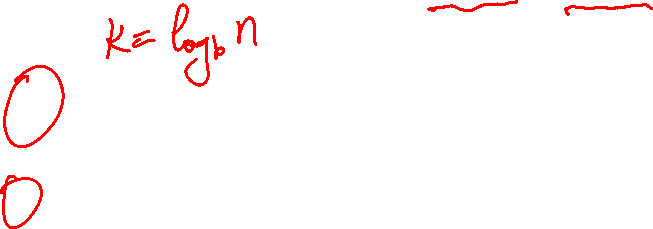 k = log_b n